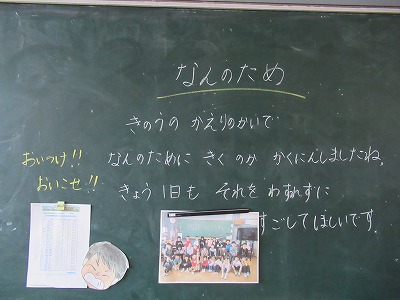 なんのため
きのうの かえりのかいで
おいつけ!!
なんのために きくのか かくにんしましたね。
おいこせ!!
きょう 1日も それを わすれずに
すごしてほしいです。